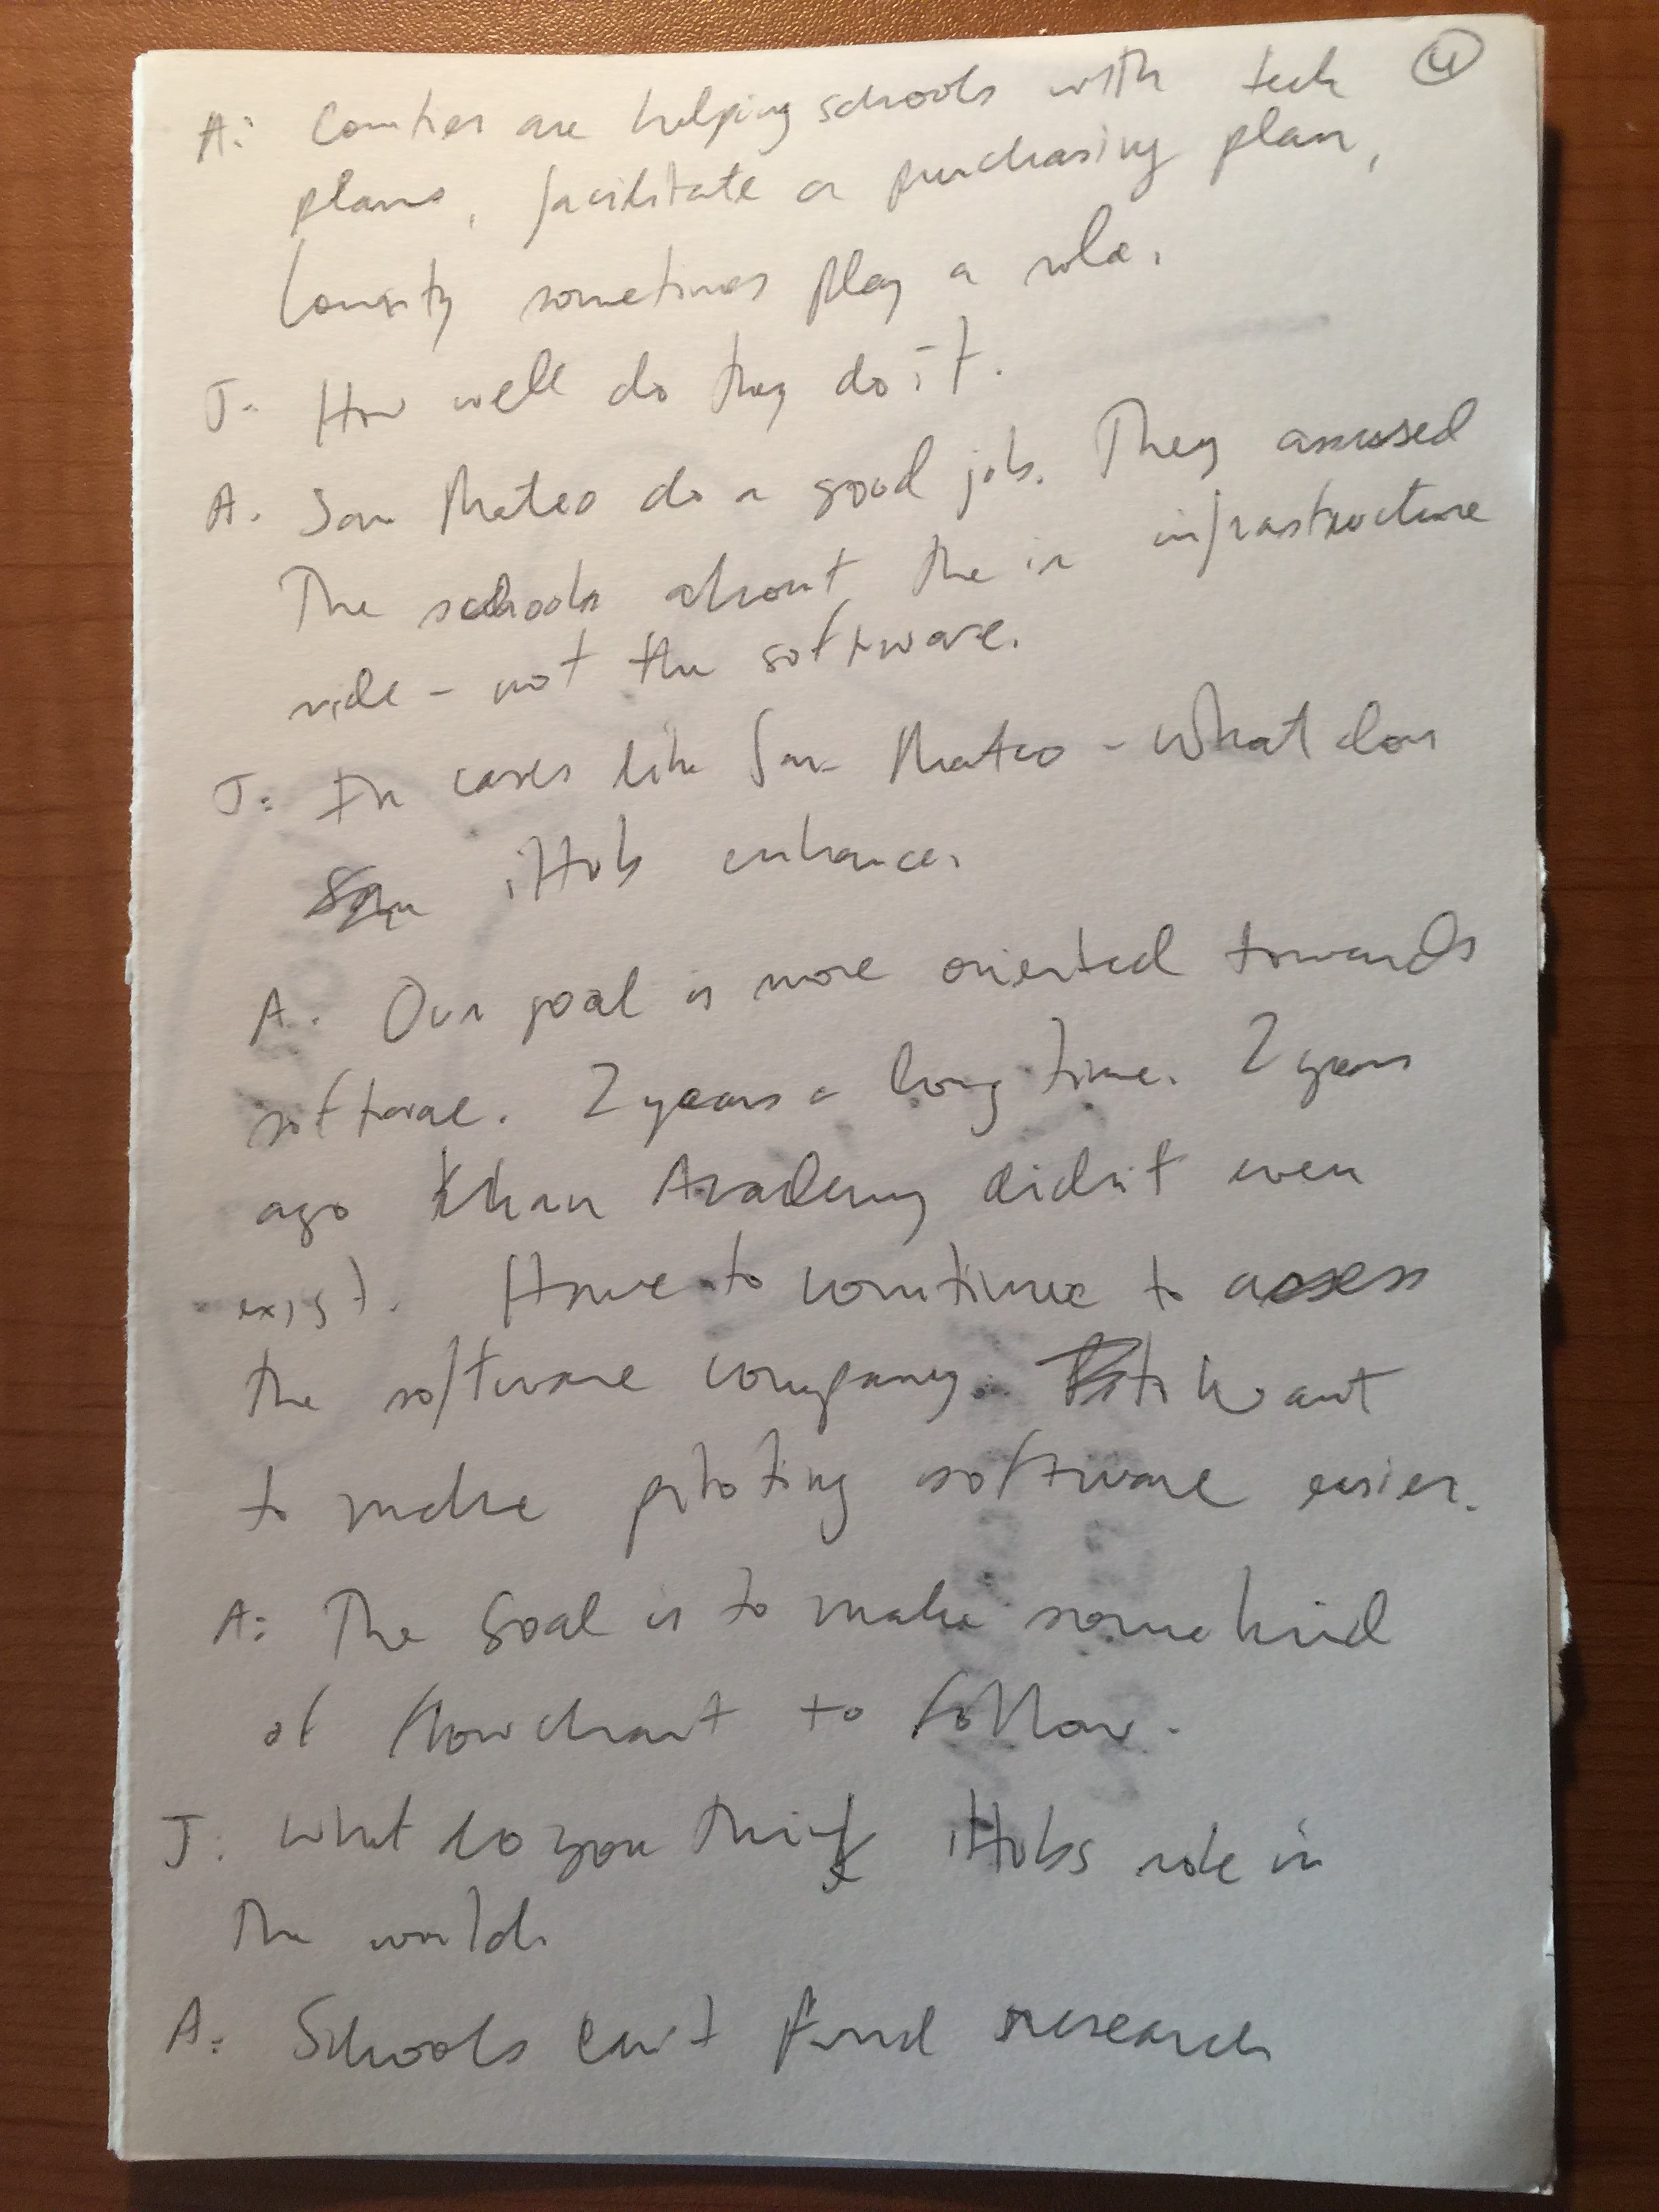 4
A: Counties are helping schools with tech
plans, facilitate a purchasing plan,
County sometimes play a role.
J- How well do they do it.
A. San Mateo do a good job. They assessed
The schools about the ir infrastructure
side - not the software.
J: In cases like San Mateo - what does
iHub enhance.
A. Our goal is more oriented towards
software. 2 years a long time. 2 years
ago Khan Academy didn't even
exist. Have to continue to assess
the software company. Want
to make piloting software easier.
A: The Goal is to make some kind
of flowchart to follow.
J: What do you think iHubs role in
The world.
A: Schools can't fund research